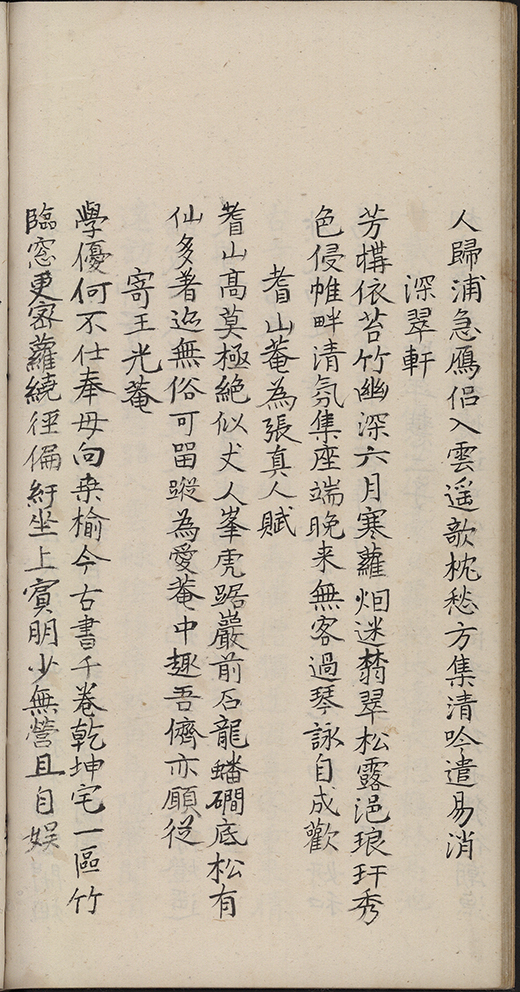 人歸浦急鴈侶入雲遥歌枕愁方集清吟遣易消
深翠軒
芳構依苔竹幽深六月寒蘿烟迷翡翠松露浥琅玕秀
色侵帷畔清氛集座端晚来無客過琴詠自成歡
耆山菴為張真人賦
耆山髙莫極絶似丈人峯虎踞巖前石龍蟠磵底松有
仙多著迹無俗可留蹤為愛菴中趣吾儕亦願從
寄王光菴
學優何不仕奉母向桒榆今古書千卷乾坤宅一區竹
臨窓更密蘿繞徑偏紆坐上賓朋少無營且自娱